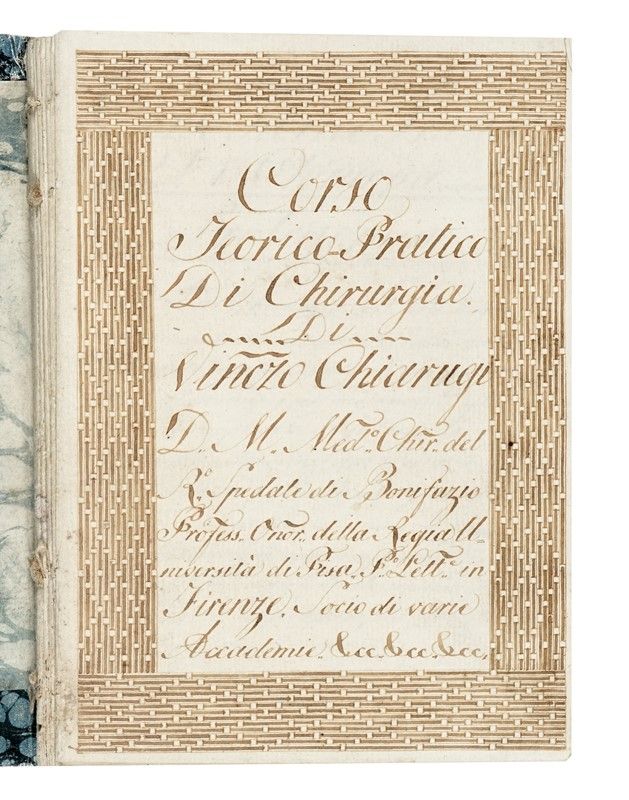 Corso
Teorico-Pratico
Di Chirurgia.
Di
Vincẽzo Chiarugi
D. M. Med.º Chir. del
R.º Spedale di Bonifazio
Profess. Onor. della Regia U-
niversità di Pisa. P.º Lett.º in
Firenze. Socio di varie
Accademie. &cc. &cc. &cc.